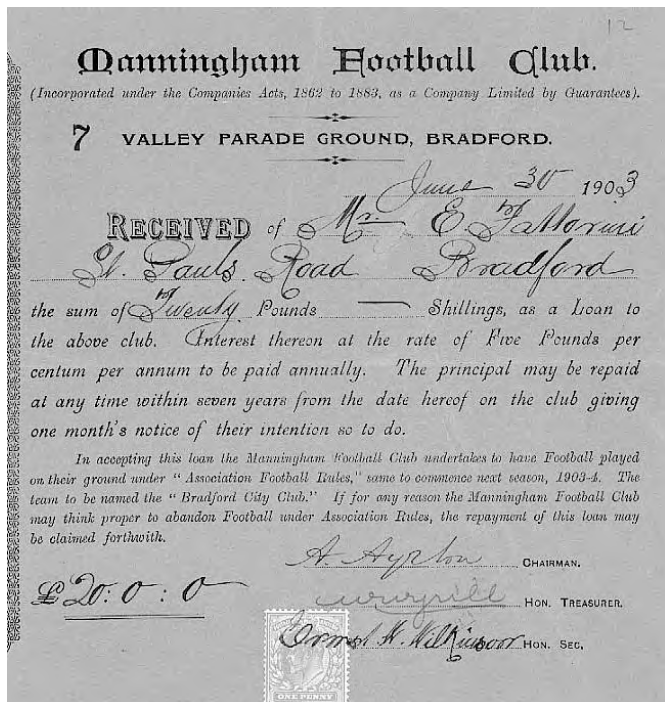 12
Manningham Football Club.
(Incorporated under the Companies Acts, 1862 to 1883, as a Company Limited by Guarantees).
7 VALLEY PARADE GROUND, BRADFORD.
June 30 1903
RECEIVED of Mr. E. Fattorini
St. Pauls Road Bradford
the sum of Twenty Pounds — Shillings, as a Loan to
the above club. Interest thereon at the rate of Five Pounds per
centum per annum to be paid annually. The principal may be repaid
at any time within seven years from the date hereof on the club giving
one month's notice of their intention so to do.
In accepting this loan the Manningham Football Club undertakes to have Football played
on their ground under "Association Football Rules," same to commence next season, 1903-4. The
team to be named the "Bradford City Club." If for any reason the Manningham Football Club
may think proper to abandon Football under Association Rules, the repayment of this loan may
be claimed forthwith.
A. Ayrton CHAIRMAN.
£20 : 0 : 0
HON. TREASURER.
H. Wilkinson HON. SEC.
ONE PENNY